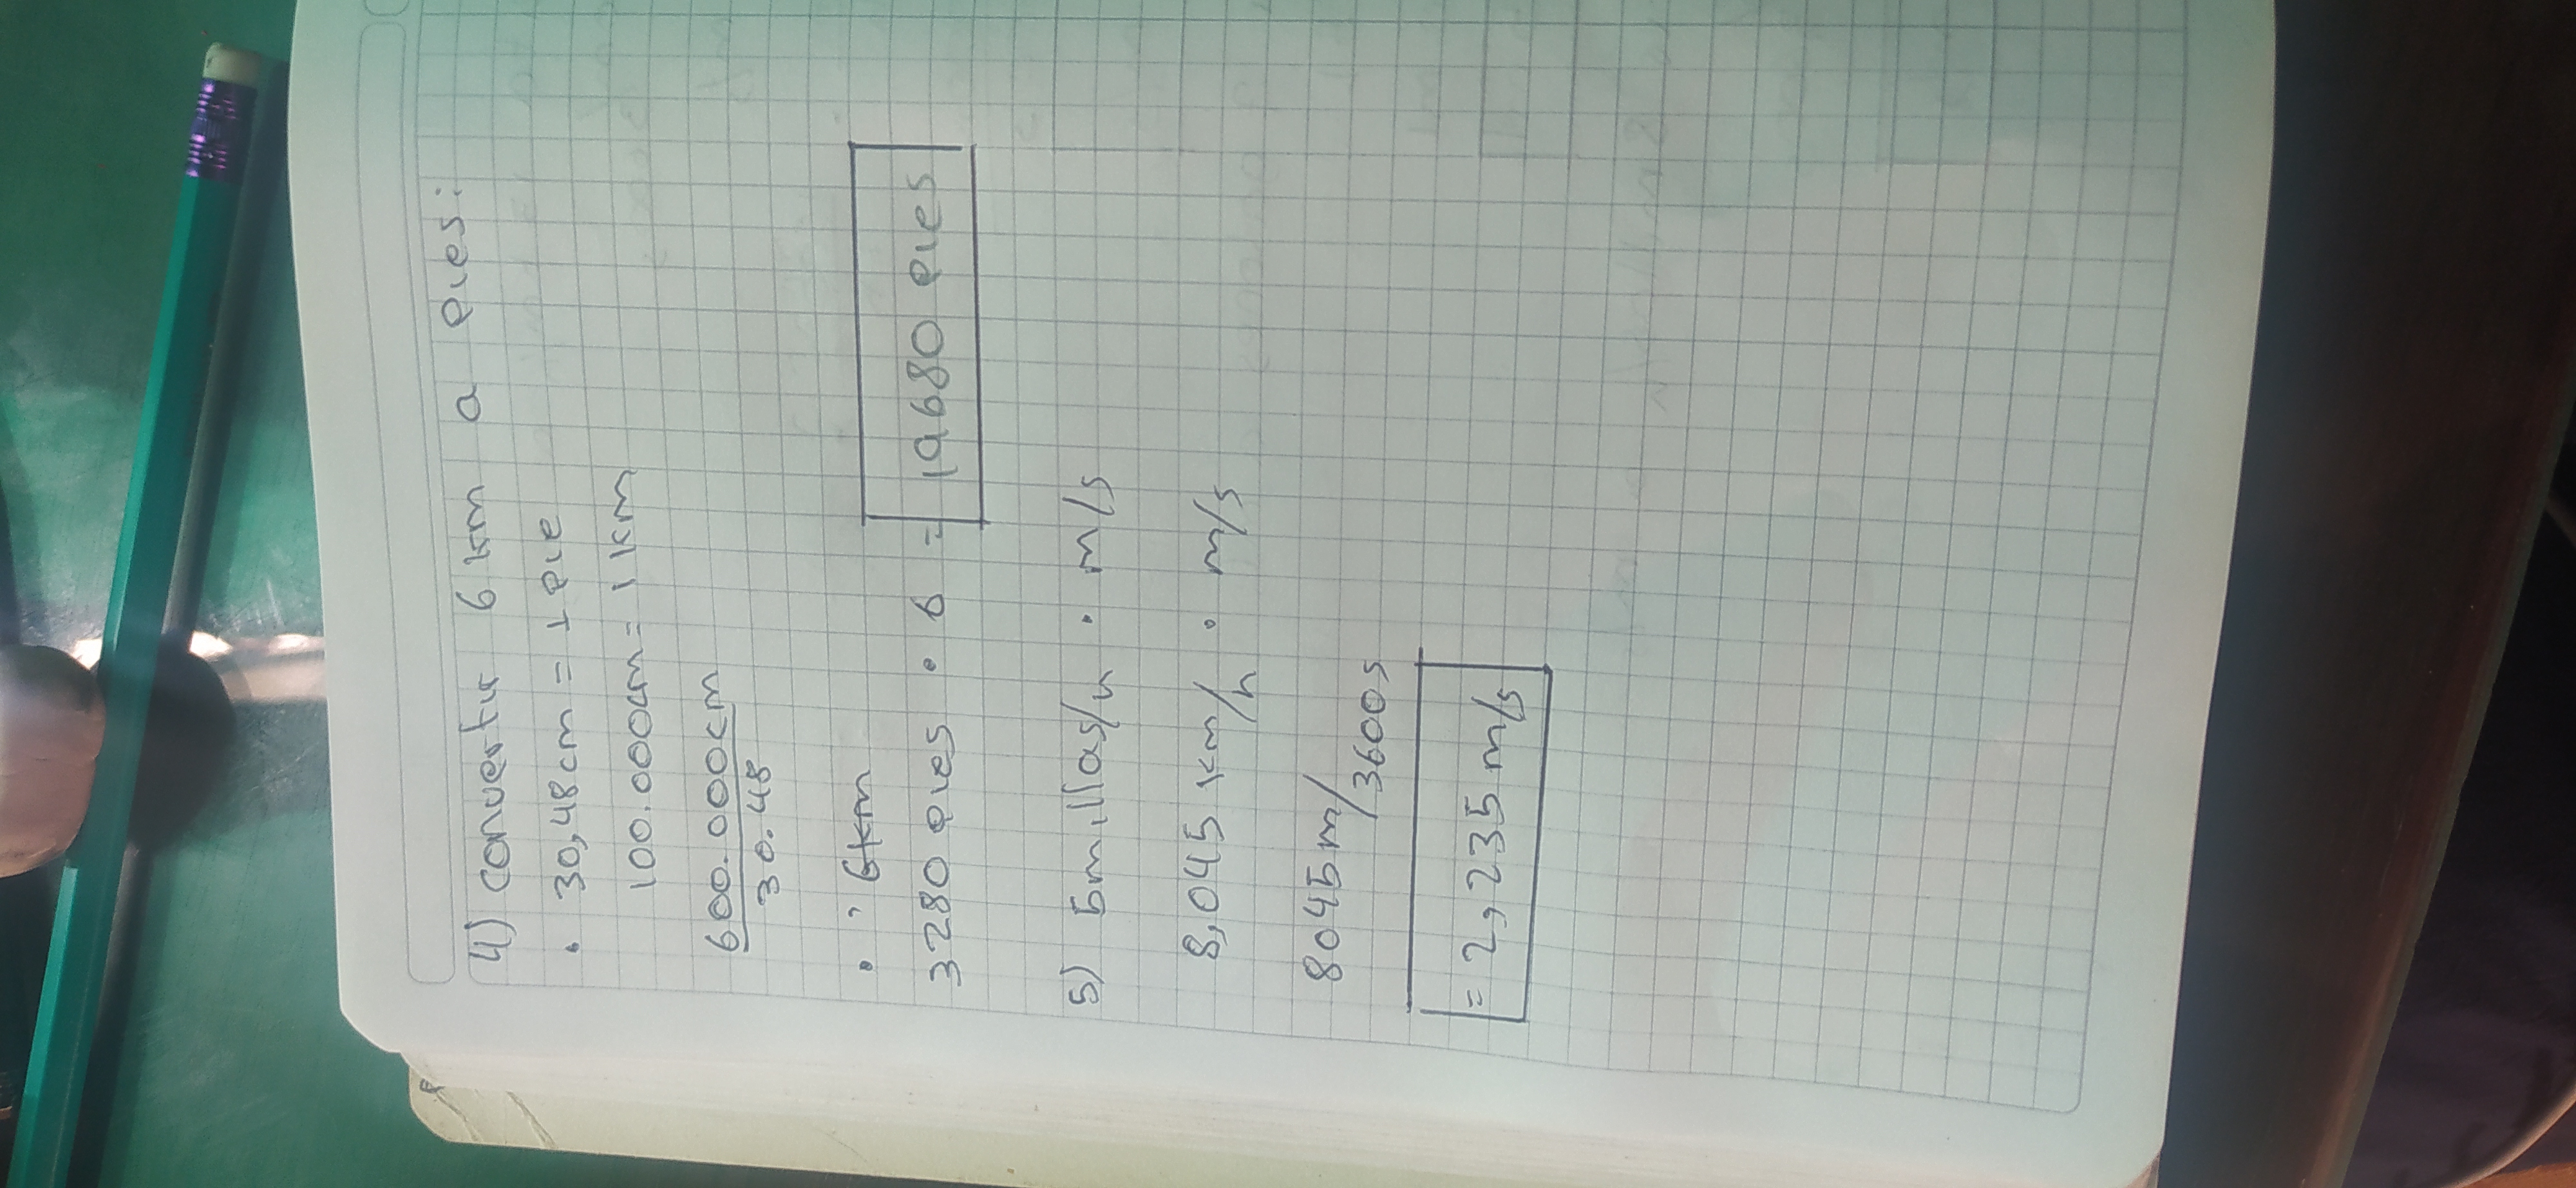 4) convertir 6 km a pies:
• 30,48cm = 1 pie
100.000cm = 1 km
600.000cm
30.48
• , 6km
3280 pies • 6 = 19680 pies
5) 5millas/h • m/s
8,045 km/h • m/s
8045m/3600s
= 2,235 m/s